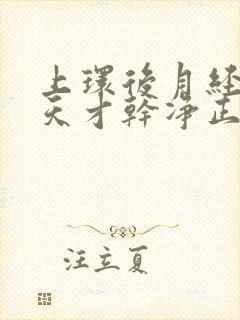 上環後月經
天才幹淨正
汪立夏